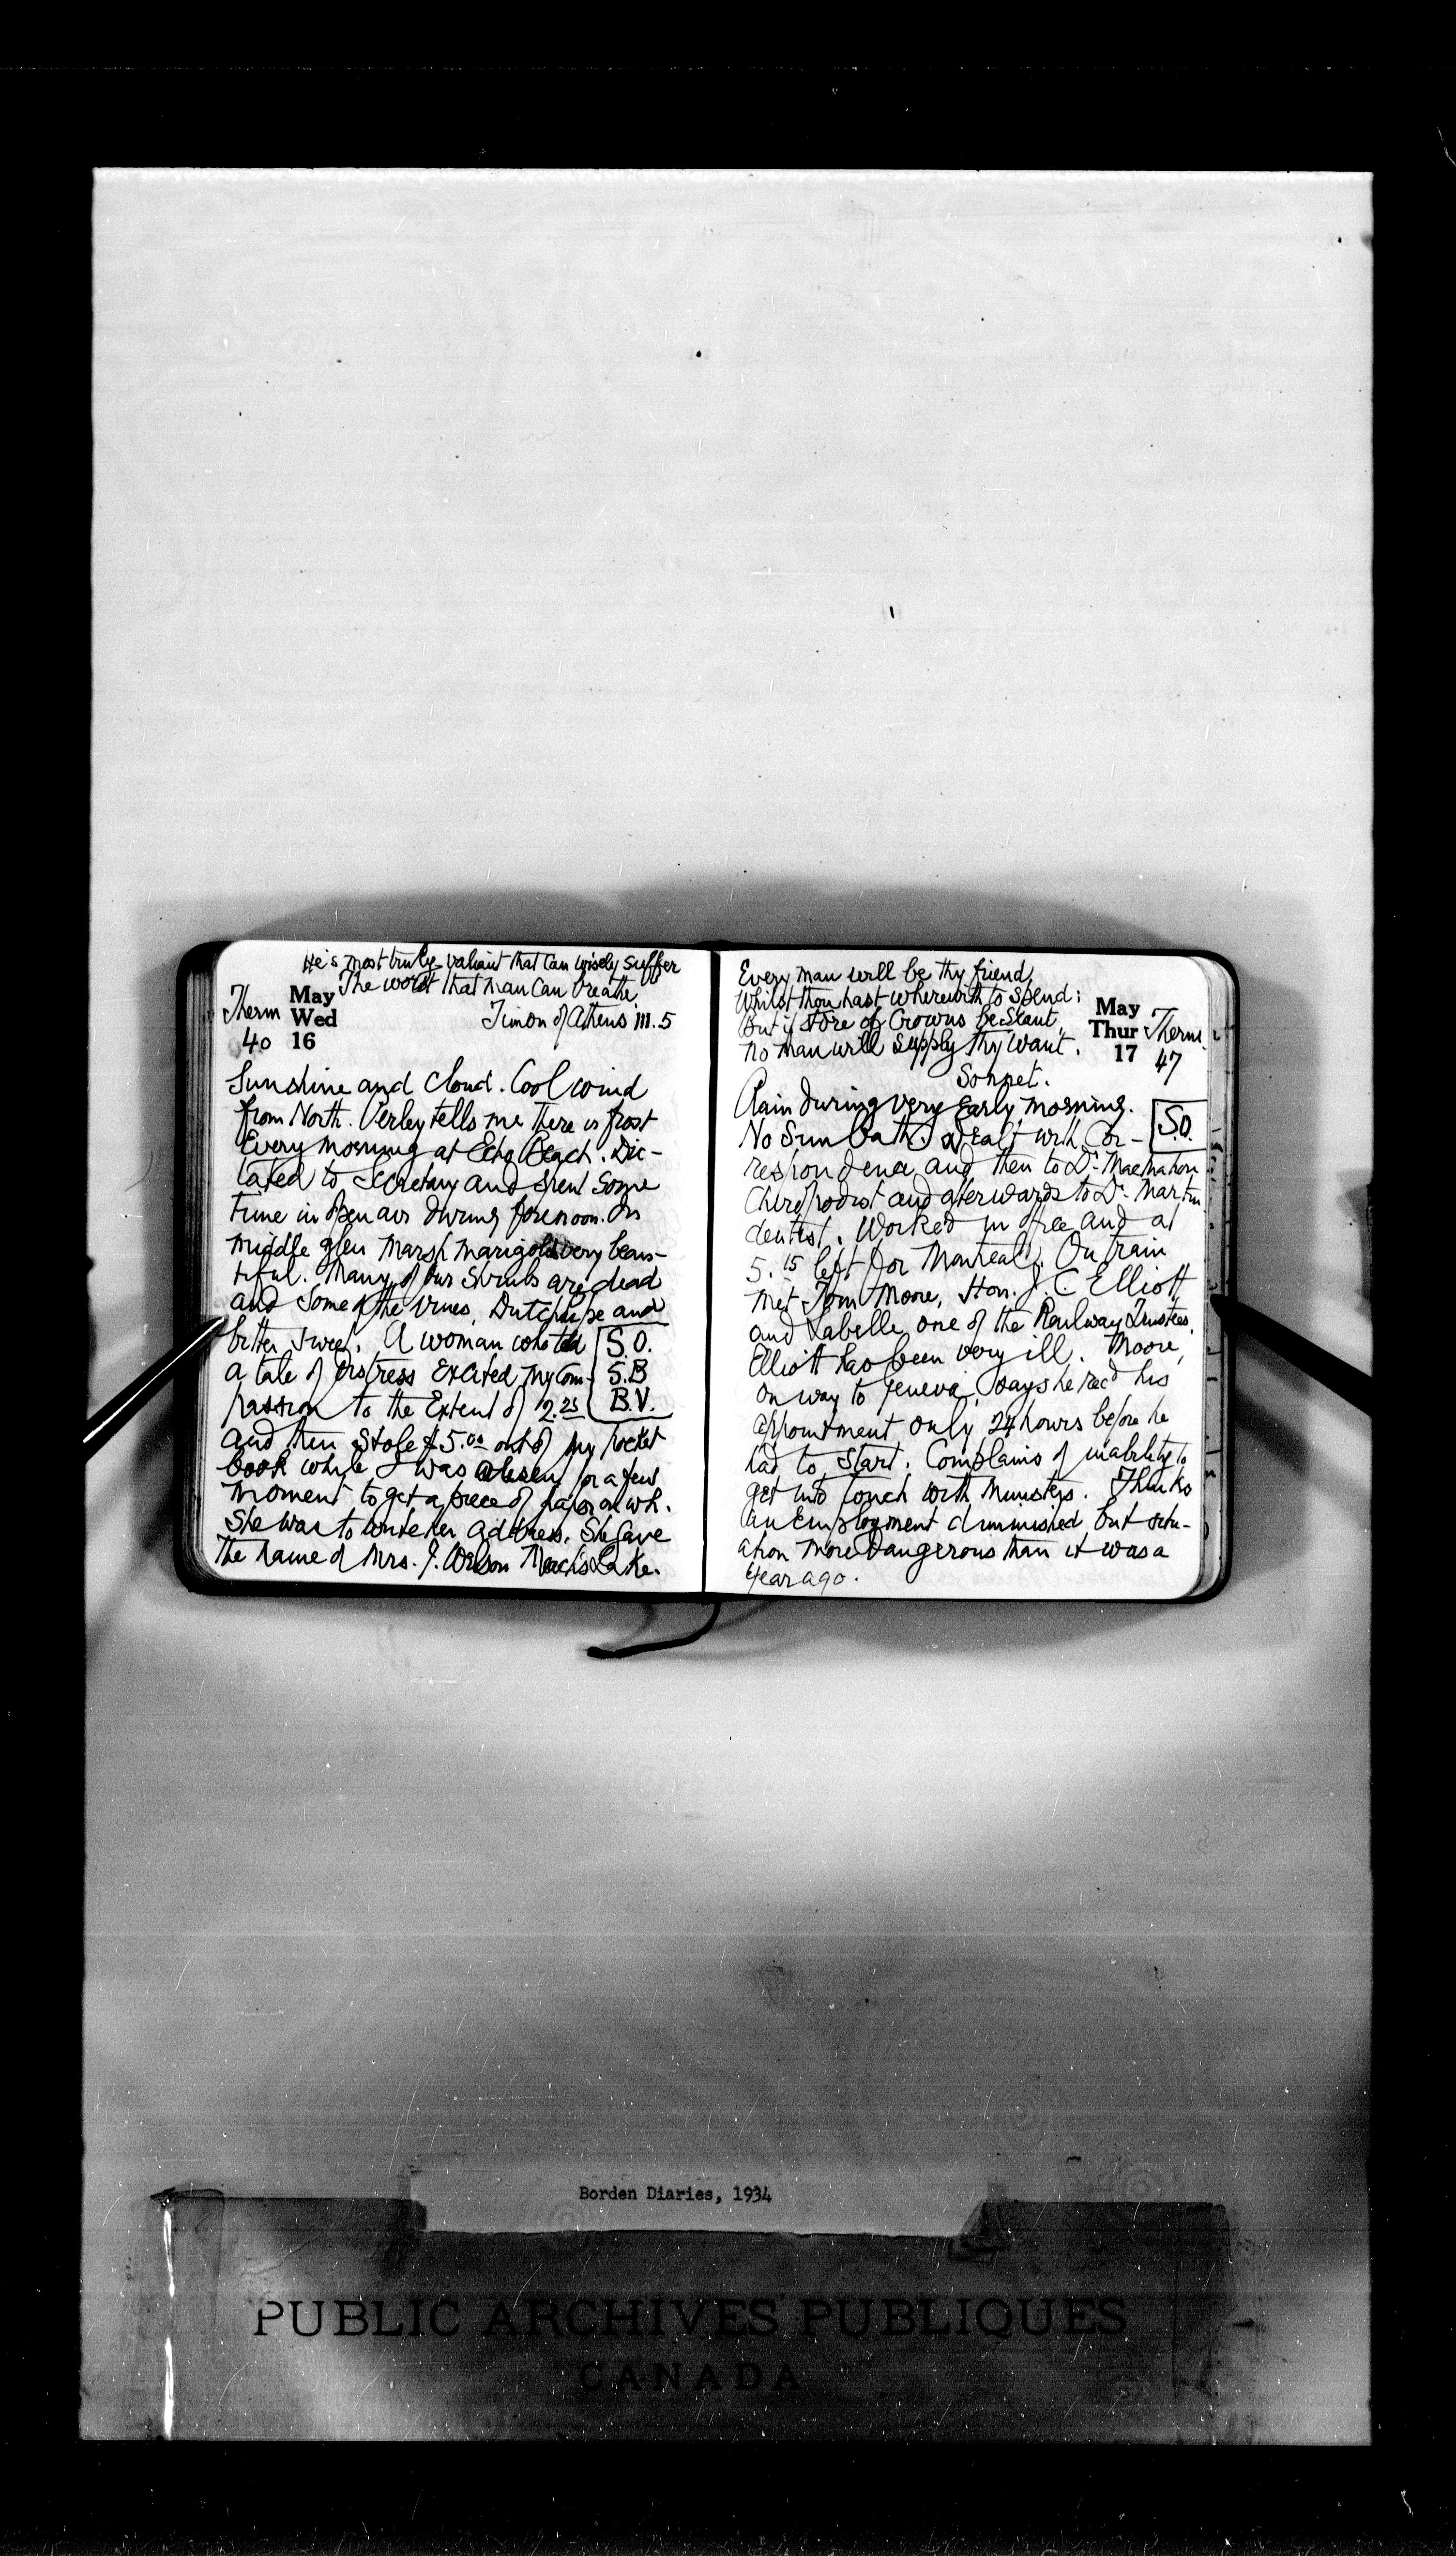 He's most truly valiant that can wisely suffer
The worst that man can breathe
Timon of Athens III. 5
Therm
40
May
Wed
16
Sunshine and cloud. Cool wind
from North. Perley tells me there is frost
every morning at Echo Beach. Dic-
tated to Secretary and spent some
time in open air during forenoon. In
middle glen Marsh marigolds very beau-
tiful. Many of our shrubs are dead
and some of the vines, Dutch pipe and
bitter sweet. A woman who told
a tale of distress excited my com-
passion to the extent of 2.25
S.O.
S.B
B.V.
and then stole $5.00 out of my pocket
book while I was absent for a few
moment to get a piece of paper on wh.
she was to write her address. She gave
the name of Mrs. J. Wilson Meach's Lake.
Every man will be thy friend,
Whilst thou hast wherewith to spend;
But if store of Crowns be scant,
No man will supply thy want.
Sonnet.
May
Thur
17
Therm.
47
Rain during very early morning.
No Sun bath. Dealt with Cor-
S.O.
respondence and then to Dr. MacMahon
Chiropodist and afterwards to Dr. Martin
dentist. Worked in office and at
5.15 left for Montreal. On train
met Tom Moore, Hon. J. C Elliott
and Labelle one of the Railway Trustees.
Elliott has been very ill. Moore,
on way to Geneva, says he rec'd his
appointment only 24 hours before he
had to start. Complains of inability to
get into touch with Ministers. Thinks
unemployment diminished but situ-
ation more dangerous than it was a
year ago.
Borden Diaries, 1934
PUBLIC ARCHIVES PUBLIQUES
CANADA